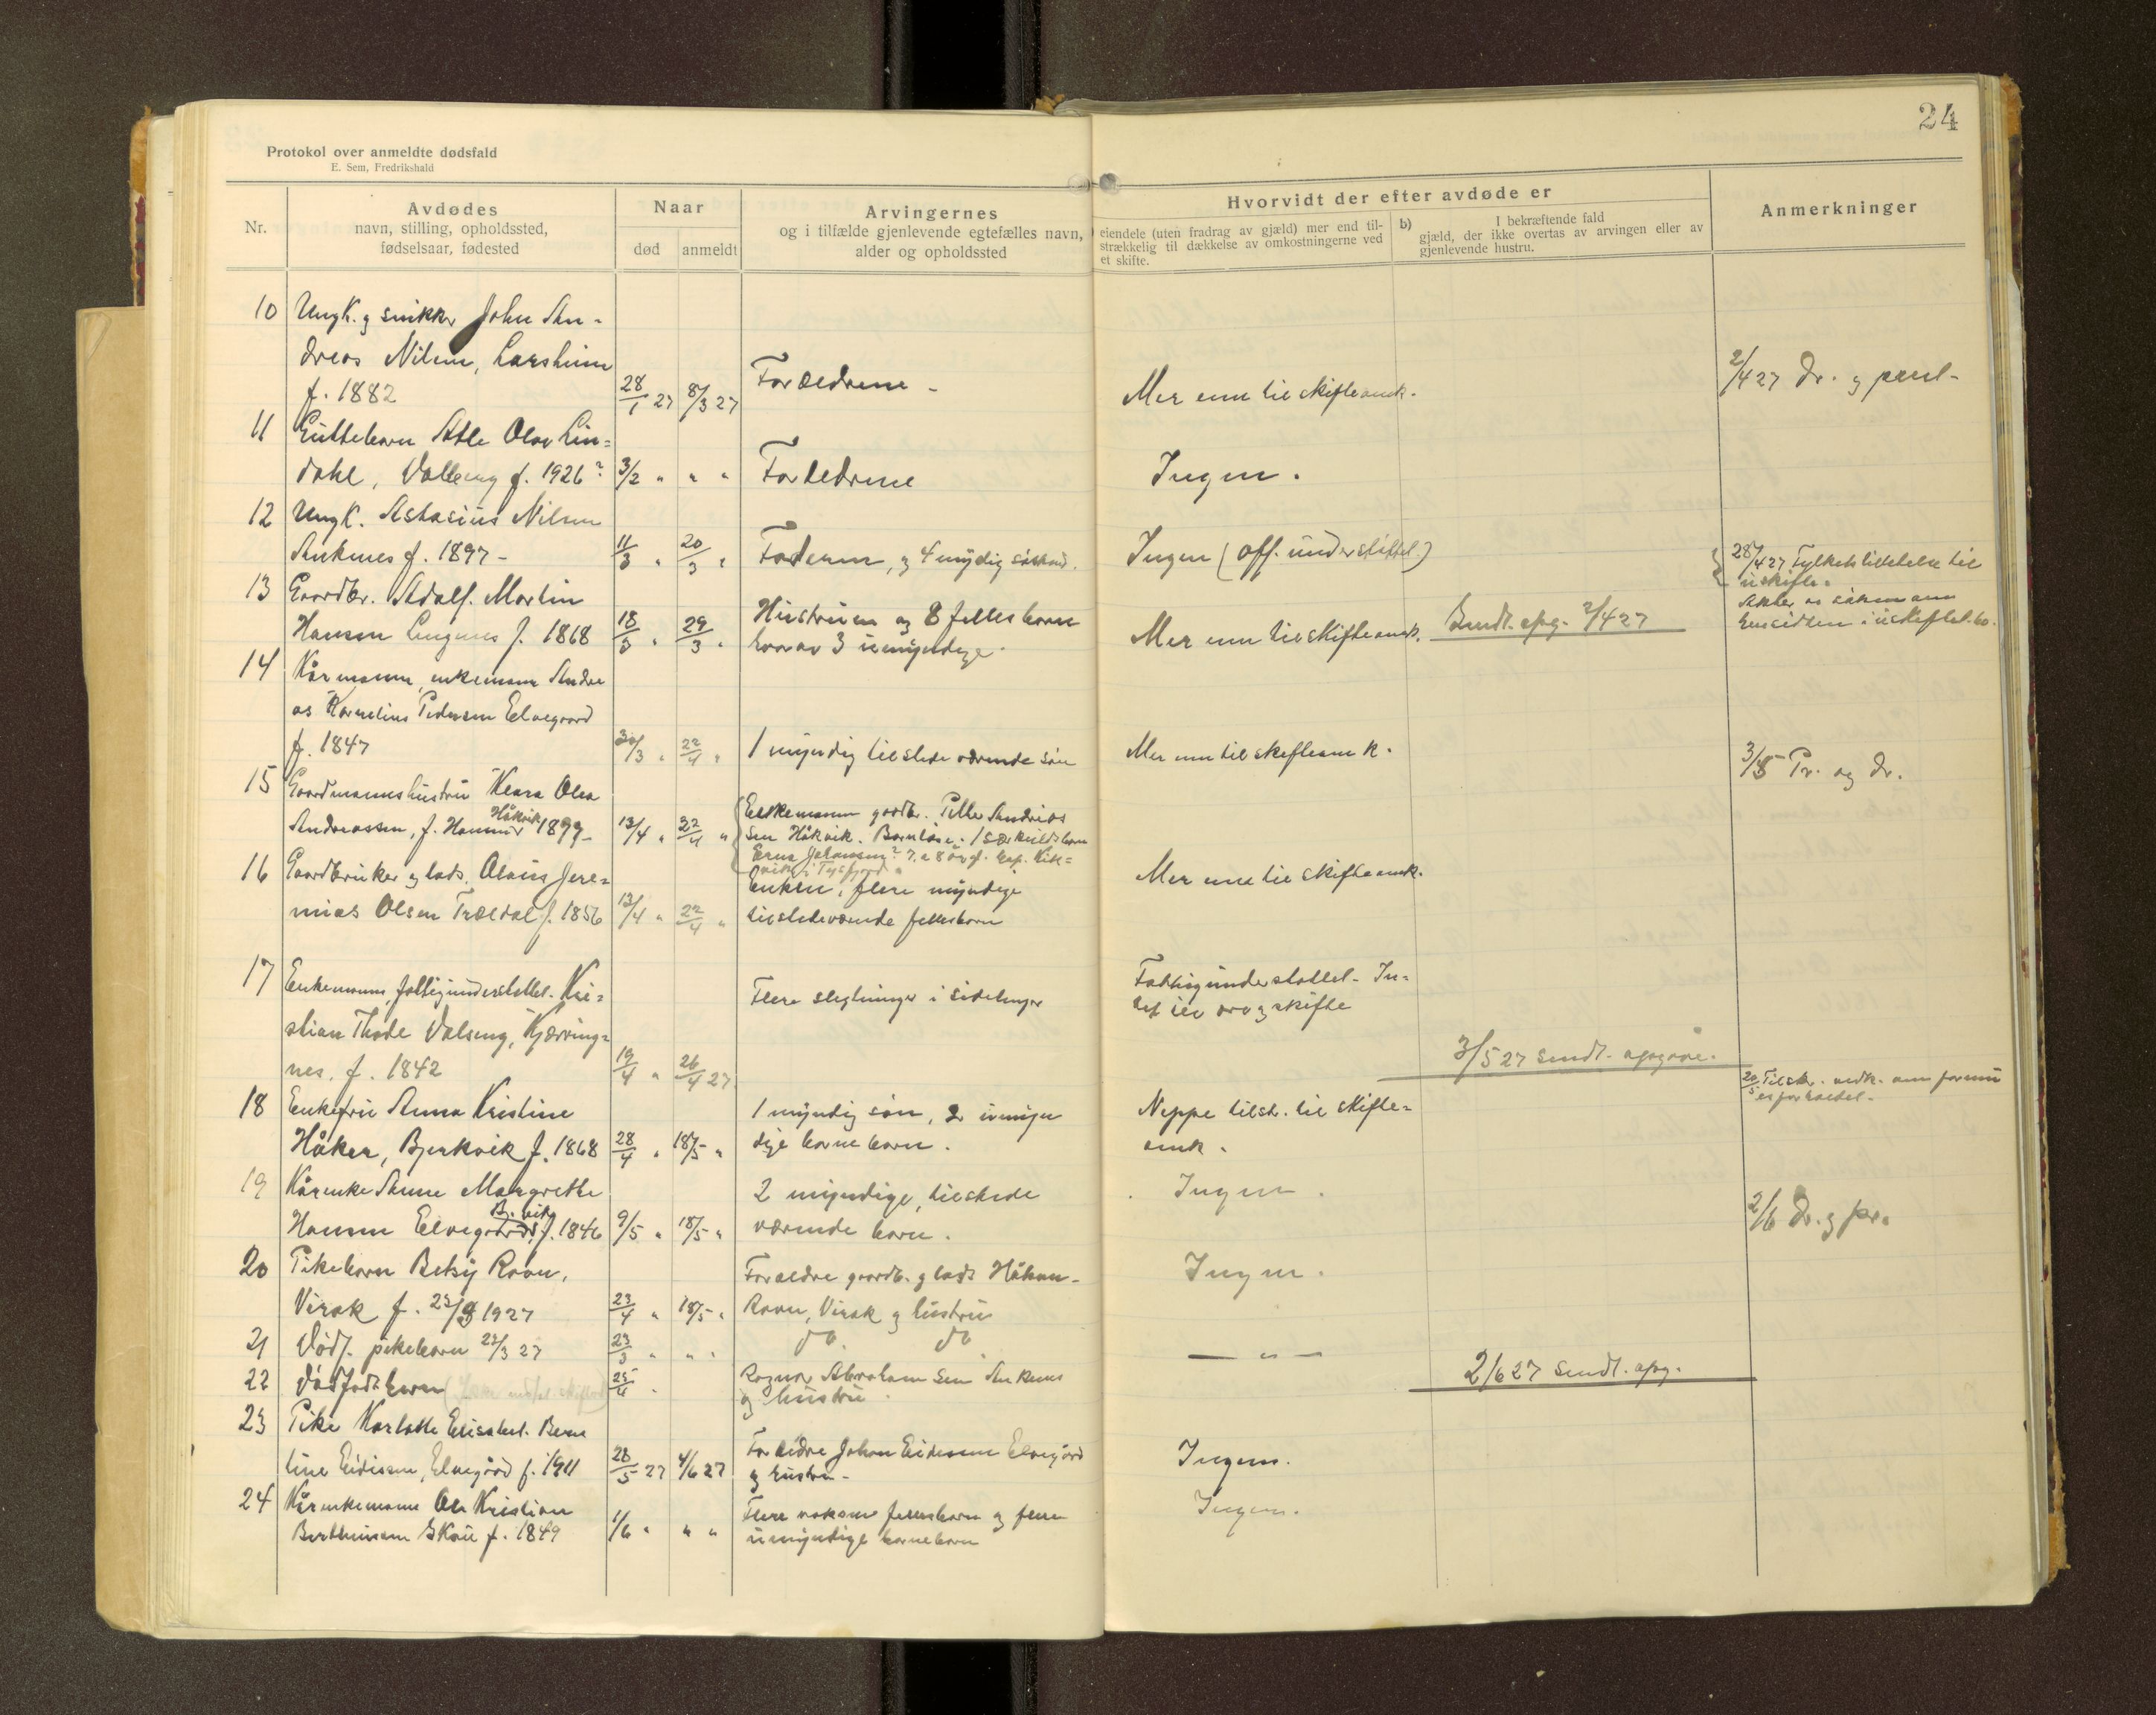 24
Protokol over anmeldte dødsfald
E. Sem, Fredrikshald
Nr.
Avdødes
navn, stilling, opholdssted,
fødselsaar, fødested
Naar
død
anmeldt
Arvingernes
og i tilfælde gjenlevende egtefælles navn,
alder og opholdssted
Hvorvidt der efter avdøde er
eiendele (uten fradrag av gjæld) mer end til-
strækkelig til dækkelse av omkostningerne ved
et skifte.
b) I bekræftende fald
gjæld, der ikke overtas av arvingen eller av
gjenlevende hustru.
Anmerkninger
10 Ungk. g snikker John An-
dreas Nilsen, Larsheim
f. 1882 28/1 27 8/3 27 Forældrene - Mer enn til skifteomk. 2/4 27 Dr. g
11 Guttebarn Atle Olav Lin=
dahl, f. 1926? 3/2 " " " Forældrene Ingen.
12 Ungk. Astasius Nilsen
Ankenes f. 1897 - 11/3 " 20/3 " og 4 myndig Ingen (off. understøttet.)
13 Gaardbr. Adolf Martin
Hansen f. 1868 18/3 " 29/3 " Hustruen og 8 fellesbarn
hvorav 3 umyndige. Mer enn til skifteomk. Sendt. opg. 2/4 27
28/4 27 Fylket til
uskifte.
i uskiftet bo.
14 Kårmann, enkemann Andre
as Kornelius Pedersen Elvegaard
f. 1847 30/3 " 22/4 " 1 myndig tilstede værende søn Mer enn til skifteomk. 3/5 Pr. og dr.
15 Gaardmannshustru Klara Olea
Andreassen, f. Hansen Håkvik 1899- 13/4 " 22/4 " Enkemann gaardbr. Peder Andreas
sen Håkvik. Barnløse. 1 særkuldsbarn
Erna Johansen? 7 a 8 år
i Tysfjord
16 Gaardbruker g lads. Olaus Jere=
mias Olsen Trældal f. 1856 13/4 " 22/4 " Enken, flere myndige
tilstedeværende fellesbarn Mer enn til skifteomk.
17 Enkemann, fattigunderstøttet. Kri=
stian Thode Valseng, Kjærring=
nes. f. 1842 19/4 " 26/4 27 Flere slegtninger i sidelinjer Fattigunderstøttet - In-
tet til arv g skifte
3/5 27 sendt. opgave.
18 Enkefru Anna Kristine
Håker, Bjerkvik f. 1868 28/4 " 18/5 " 1 myndig søn, 2 umyn
dige barnebarn. Neppe tilstr. til skifte=
omk.
20/5 Tilskr. vedk. om
19 Kårenke Anne Margrethe
Hansen Elvegaard, B.vik f. 1846 9/5 " 18/5 " 2 myndige, tilstede
værende barn. Ingen. 2/6 Dr. g pr.
20 Pikebarn Betsy Ravn,
Virak f. 23/3 1927 23/4 " 18/5 " Forældre gaardb. g lads Håkon
Ravn, Virak g hustru Ingen.
21 Dødf. pikebarn 23/3 27 23/3 " " " do. do — " —
22 Dødfødt barn 25/4 " Ragnar Abrahamsen Ankenes
og hustru
2/6 27 sendt. opg.
23 Pike Karlotte Elisabet Bern
tine Eidissen, Elvegård f. 1911 28/5 27 4/6 27 Forældre Johan Eidissen Elvegård
g hustru - Ingen.
24 Kårenkemann Ole Kristian
Berthinsen f. 1849 1/6 " " " Flere voksne fellesbarn og flere
umyndige barnebarn Ingen.